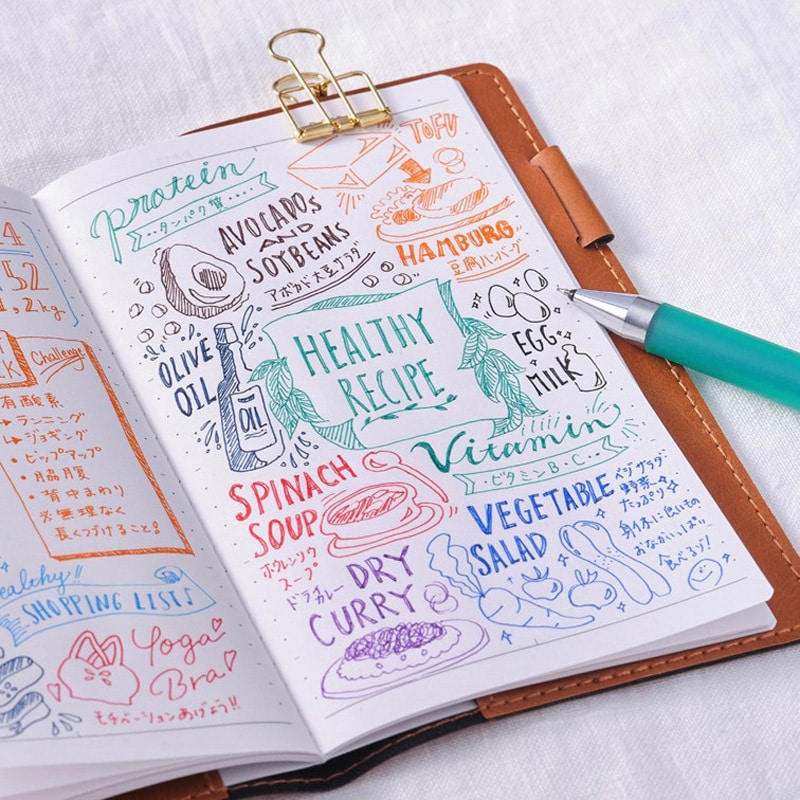 4
52
1,2kg
Challenge
有酸素
→ランニング
→ジョギング
・ビップアップ
・脇腹
・背中まわり
※無理なく
長くつづけること!
Healthy!!
SHOPPING LISTS
Yoga
Bra
モチベーションあげよう!!
protein
・・タンパク質・・・・
AVOCADOS
AND
SOYBEANS
アボカド大豆サラダ
TOFU
HAMBURG
豆腐ハンバーグ
OLIVE
OIL
OIL
HEALTHY
RECIPE
EGG
MILK
Vitamin
・・ビタミンB・C・・
SPINACH
SOUP
ホウレンソウ
スープ
VEGETABLE
SALAD
ベジサラダ
野菜
たっぷり
身体に良いもの
おなかいっぱい
食べるぞ!
DRY
CURRY
ドライ
カレー